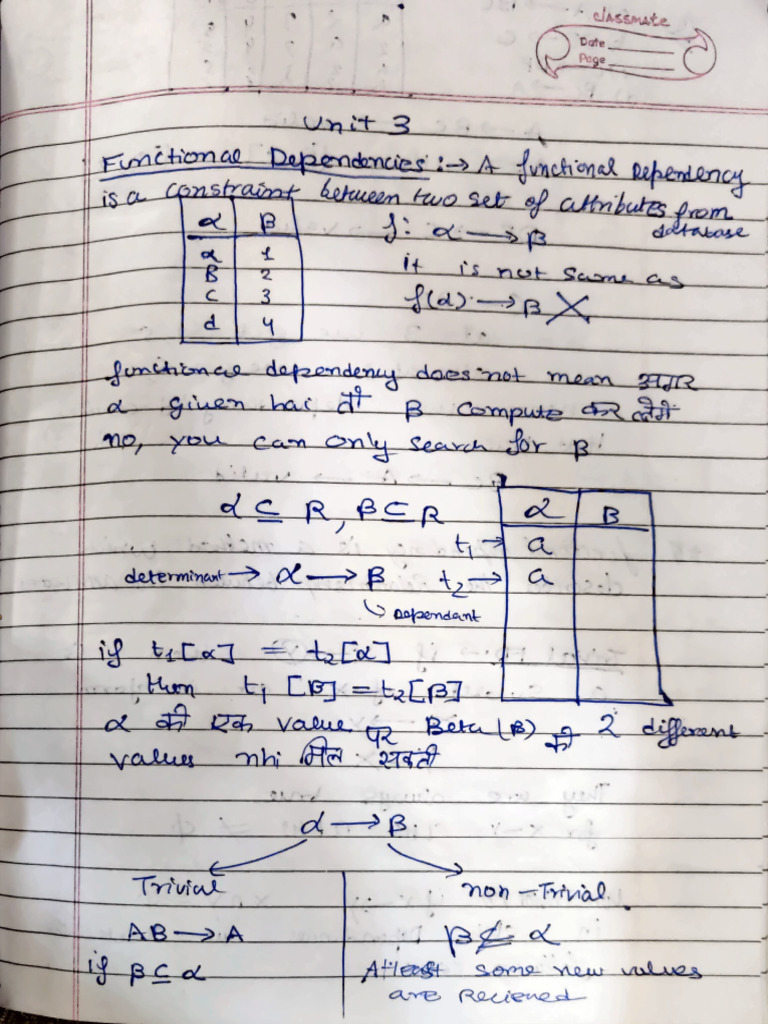 classmate
Date
Page
Unit 3
Functional Dependencies :→ A functional Dependency
is a constraint between two set of attributes from
database
α β
α 1
B 2
c 3
d 4
f: α → β
it is not same as
f(α) → β X
functional dependency does not mean अगर
α given hai तो β compute कर लेंगे
no, you can only search for β
α ⊆ R, β ⊆ R
α B
t₁ → a
t₂ → a
determinant → α → β
Dependant
if t₁[α] = t₂[α]
then t₁ [β] = t₂[β]
α की एक value पर Beta (β) की 2 different
values nhi मिल सकती
α → β
Trivial
AB → A
if β ⊆ α
non-Trivial
β ⊄ α
Atleast some new values
are Recieved